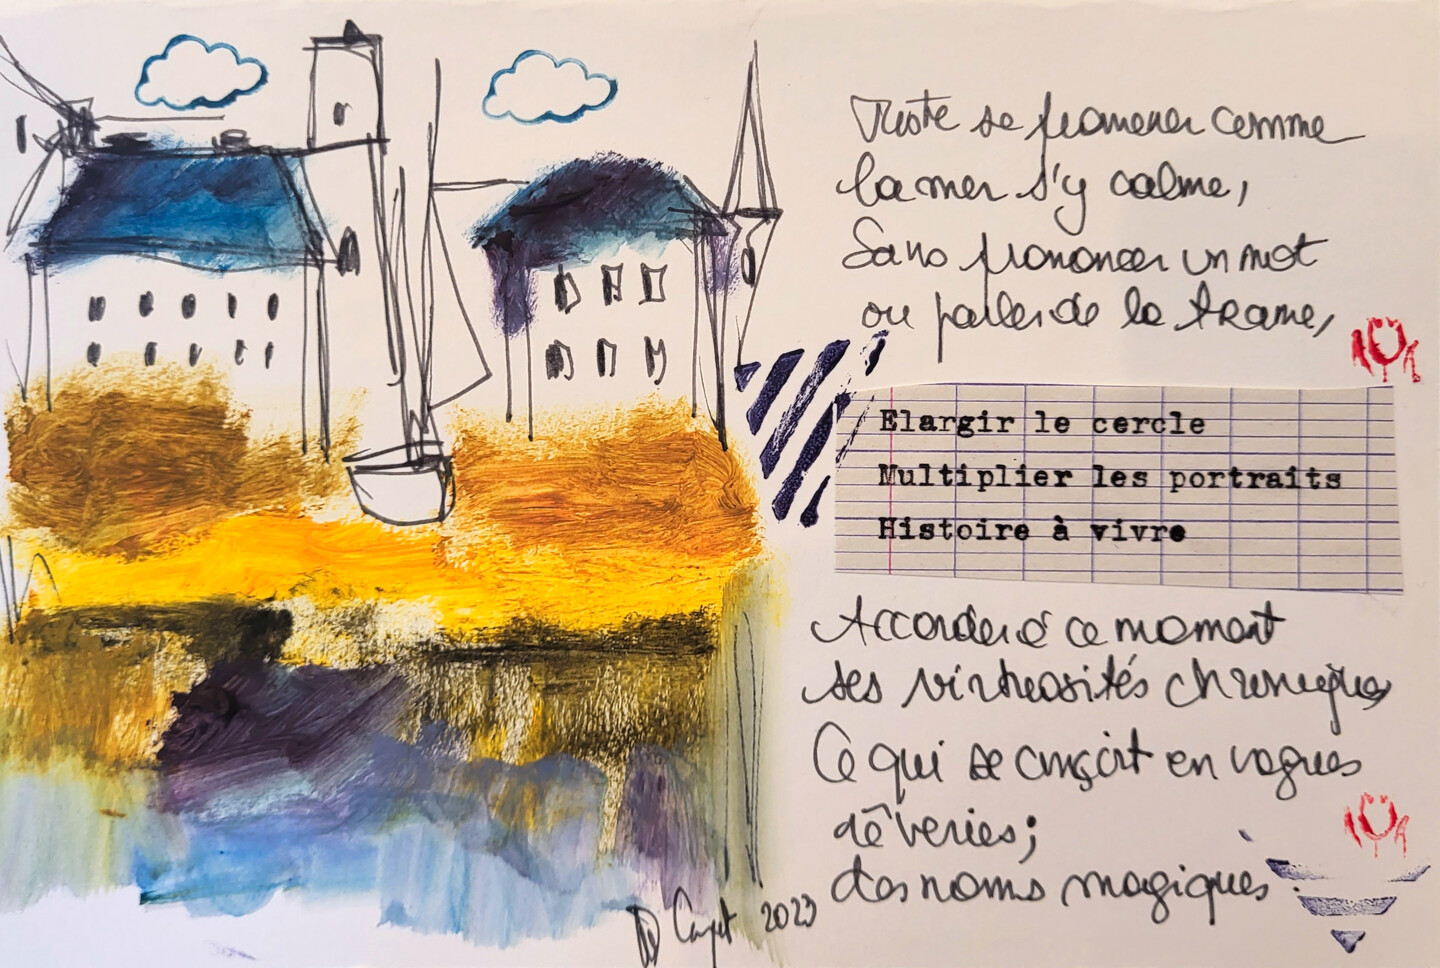 Juste se promener comme
la mer s'y calme,
Sans prononcer un mot
ou parler de la trame,
Elargir le cercle
Multiplier les portraits
Histoire à vivre
Accorder à ce moment
ses virtuosités chroniques
Ce qui se conçoit en vagues
rêveries;
des noms magiques.
2023